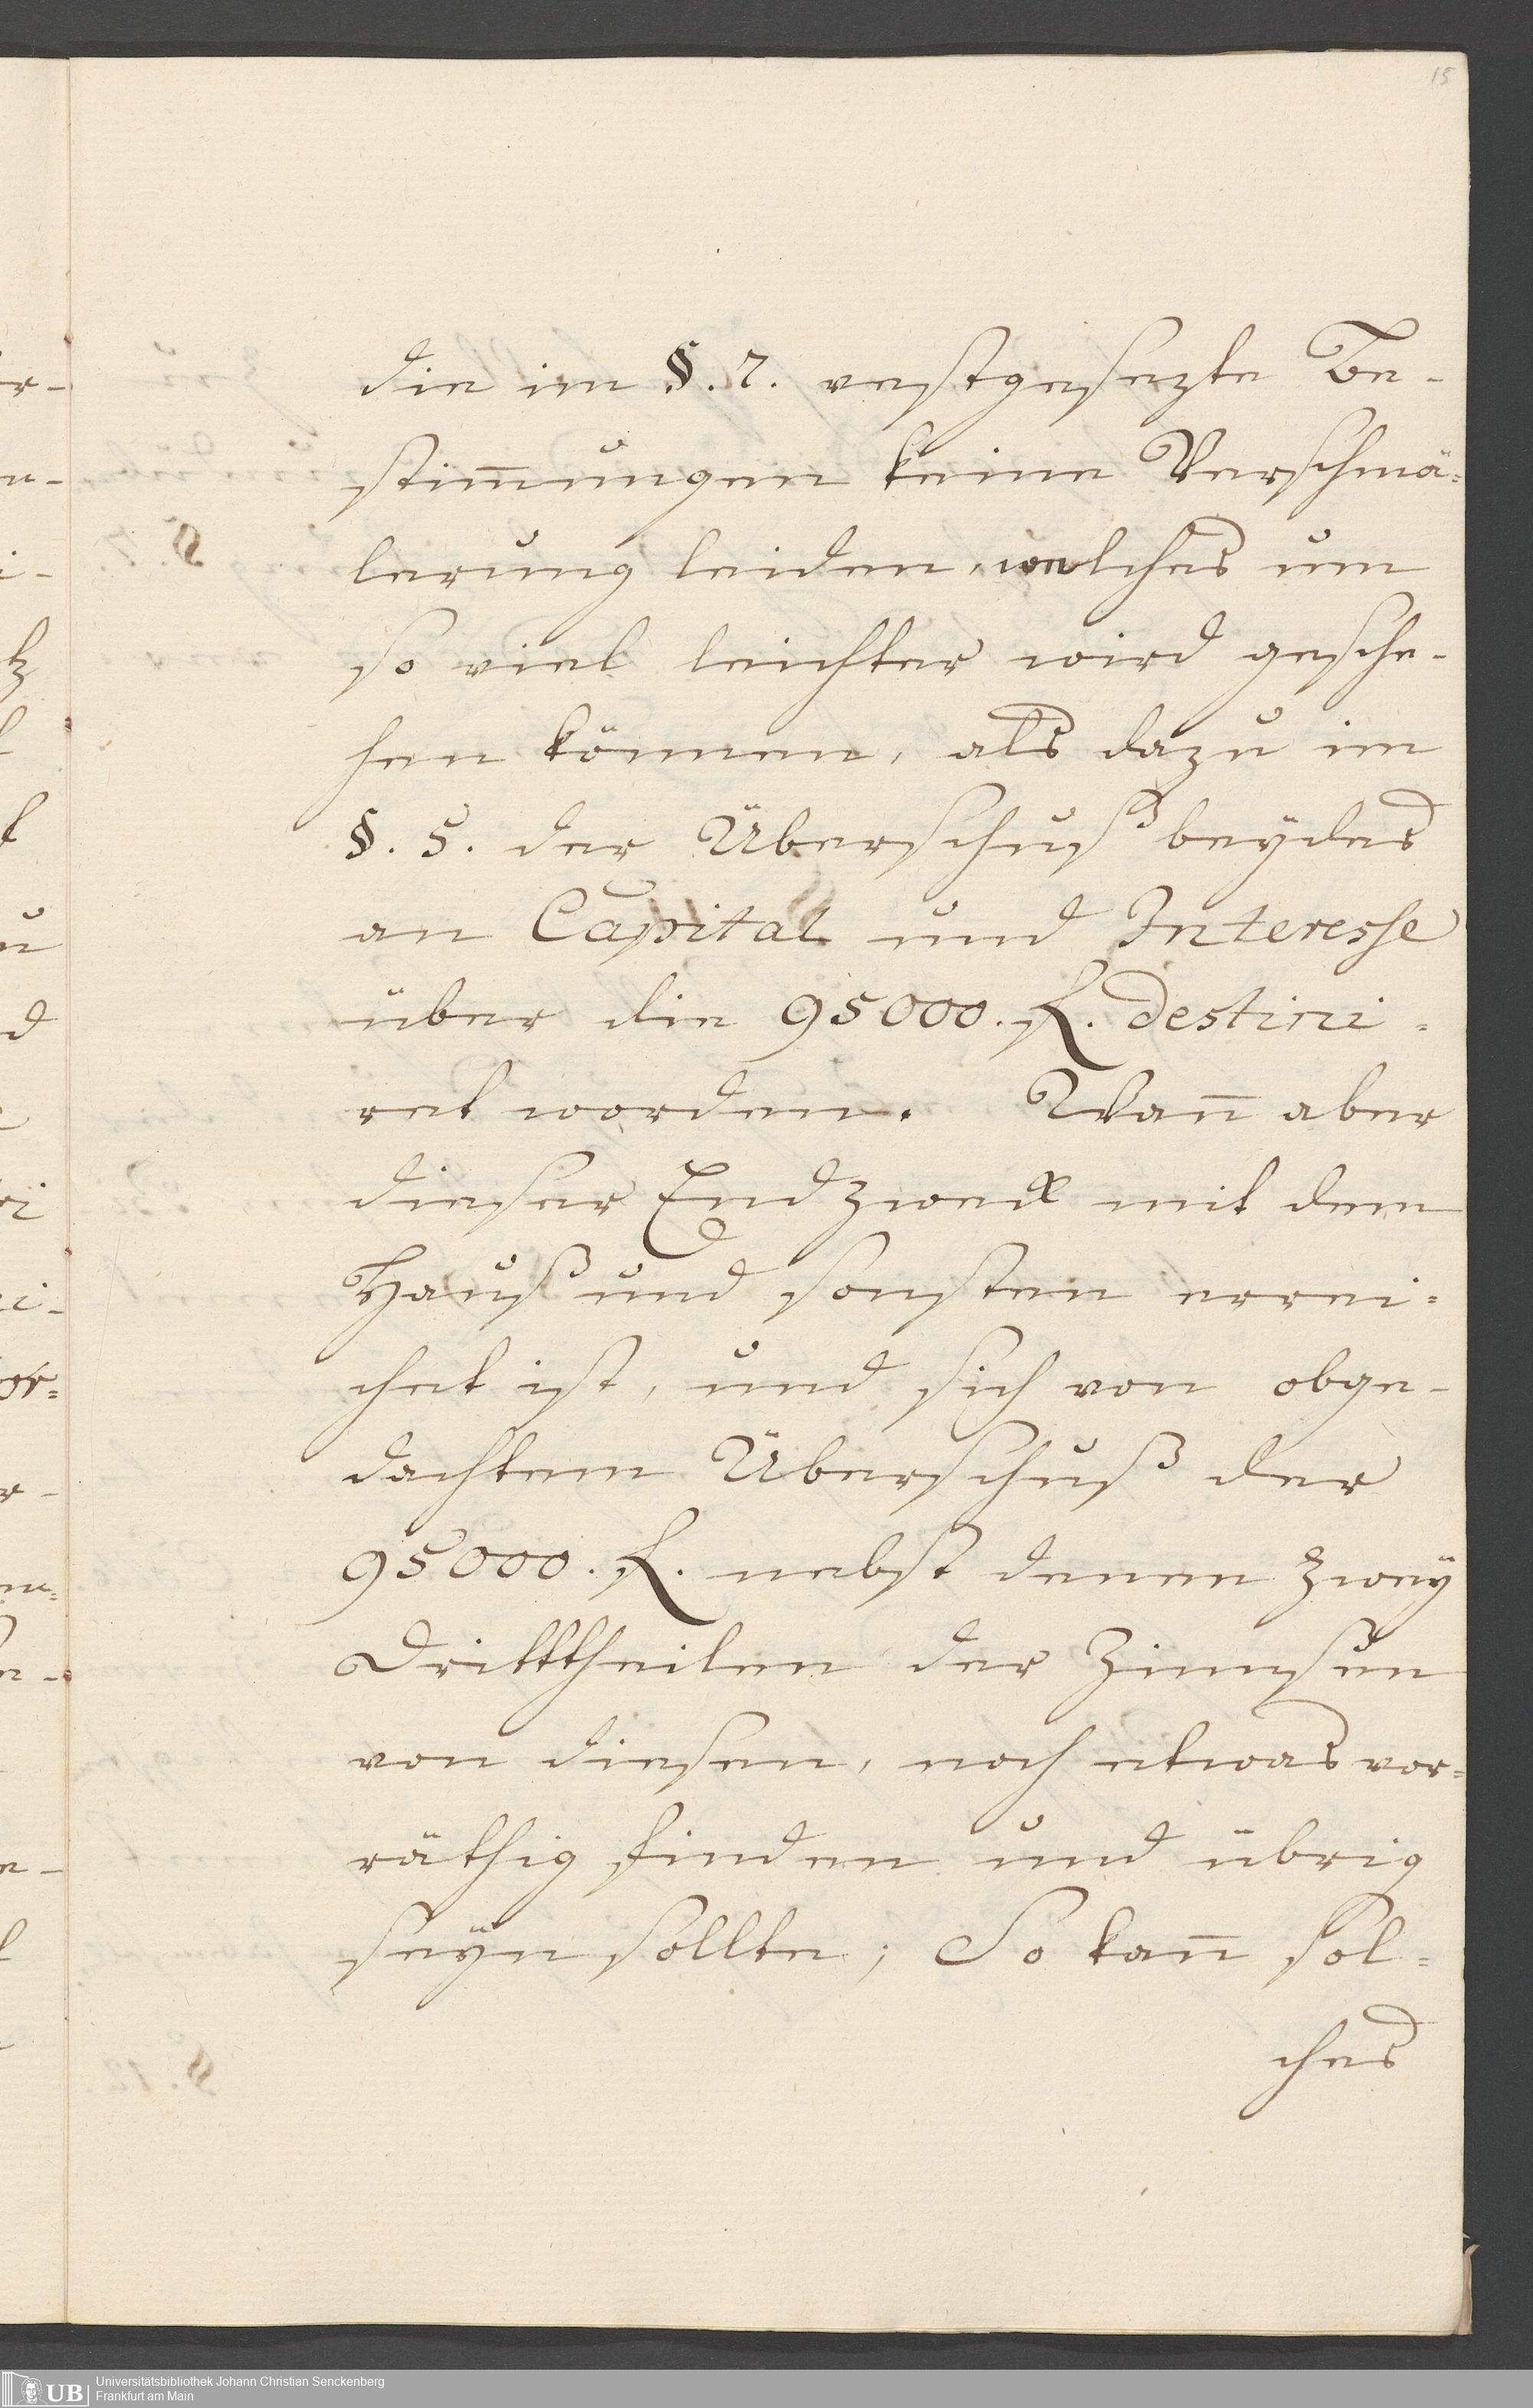 15
die im §. 7. vestgesezte Be-
stim̅ungen keine Verschmä=
lerung leiden, welches um
so viel leichter wird gesche-
hen können, als dazu im
§. 5. der Überschuß beydes
an Capital und Interesse
über die 95000. f. destini=
ret worden. Wan̅ aber
dieser Endzweck mit dem
Hauß und sonsten errei=
chet ist, und sich von obge-
dachtem Überschuß der
95000. f. nebst denen zwey
Dritttheilen der Zinnßen
von diesen, noch etwas vor=
räthig finden und übrig
seÿn sollte; So kan̅ sol=
ches
UB
Universitätsbibliothek Johann Christian Senckenberg
Frankfurt am Main